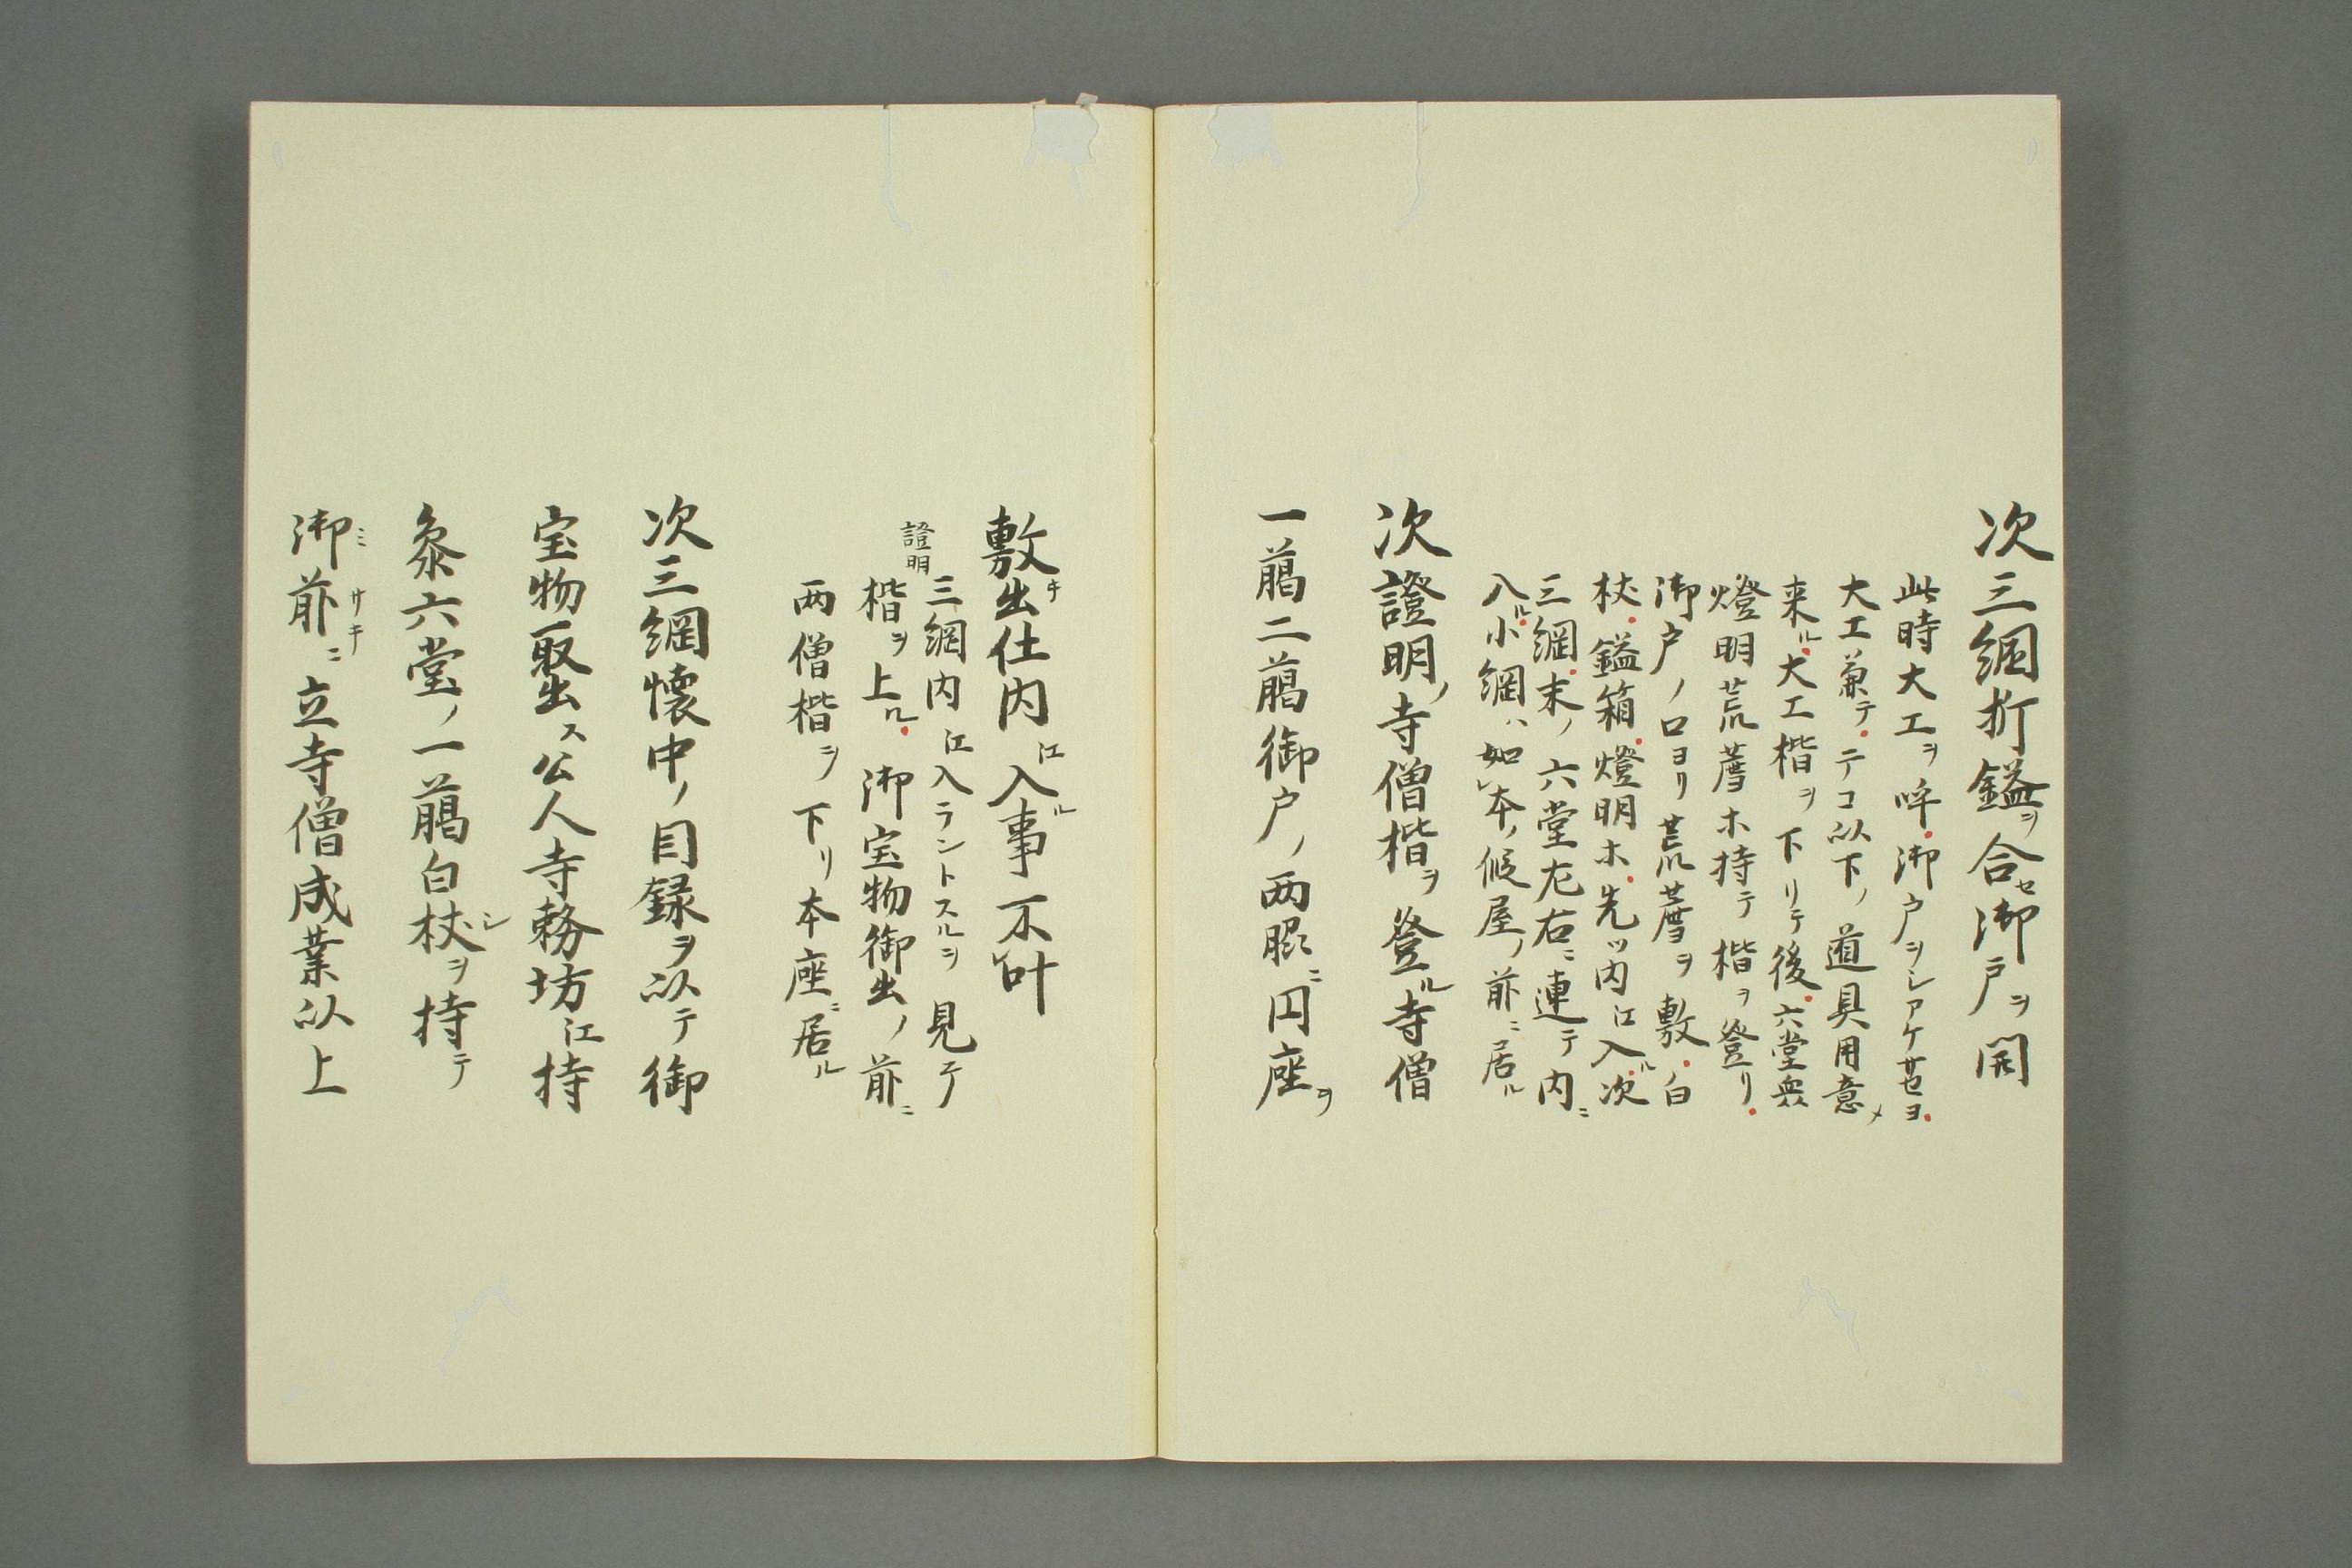 次三綱折鎰ヲ合セ御戸ヲ開
此時大工ヲ呼御戸ヲシアケサセヨ
大工兼テテコ以下ノ道具用意メ
来ル大工楷ヲ下リテ後六堂衆
燈明荒薦ホ持テ楷ヲ登リ
御戸ノ口ヨリ荒薦ヲ敷白
杖鎰箱燈明ホ先ツ内江入ル次
三綱末ノ六堂左右ニ連テ内ニ
入ル小綱ハ如レ本ノ假屋ノ前ニ居ル
次證明ノ寺僧楷ヲ登ル寺僧
一﨟二﨟御戸ノ両眼ニ円座ヲ
敷キ出仕内江入ル事不レ叶
證明
三綱内江入ラントスルヲ見テ
楷ヲ上ル御宝物御出ノ前ニ
両僧楷ヲ下リ本座ニ居ル
次三綱懐中ノ目録ヲ以テ御
宝物取出ス公人寺務坊江持
参六堂ノ一﨟白杖ヲシ持テ
御ミ前サキニ立寺僧成業以上